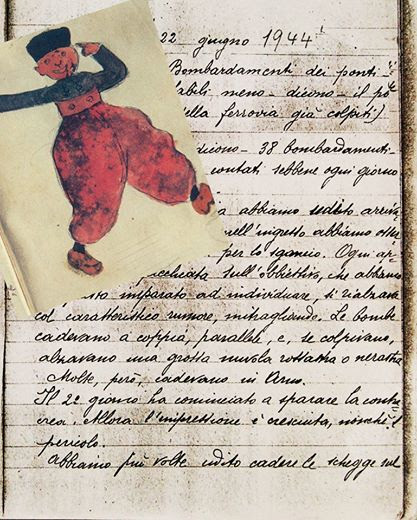 22 giugno 1944
Bombardamenti dei ponti -
labili meno - dicono - il po
della ferrovia già colpiti)
dicono - 38 bombardamenti
contati sebbene ogni giorno
abbiamo sedito arriva
nell'ingesto abbiamo
per lo sgancio. Ogni ap
picchiata sull'obbiettivo, che abbiamo
imparato ad individuare, si rialzava
col caratteristico rumore, mitragliando. Le bombe
cadevano a coppia, parallele, e, se colpivano,
alzavano una grossa nuvola rossastra o nerastra
Molte, però, cadevano in Arno.
Il 2º giorno ha cominciato a sparare la contr
erea. Allora l'impressione è cresciuta, nonchè il
pericolo.
Abbiamo più volte udito cadere le schegge sul